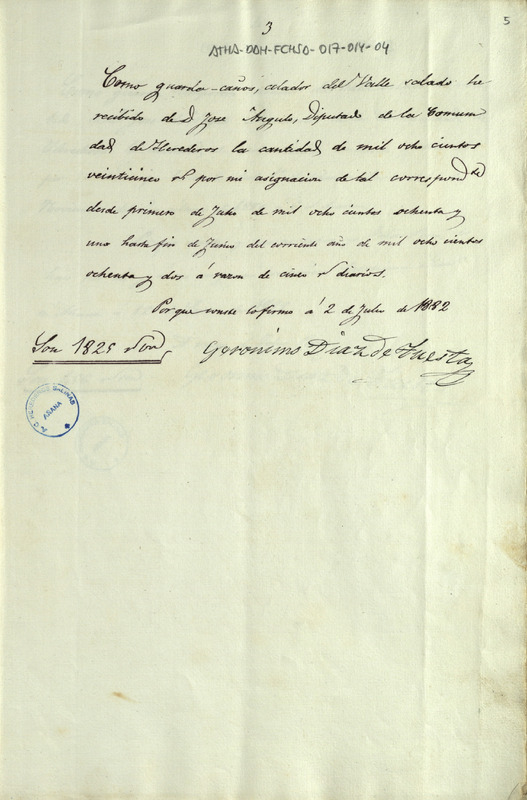 3
5
ATHA-DAH-FCHSA-017-014-04
Como guarda-caños, celador del Valle salado he
recibido de D Jose Angulo, Diputado de la Comuni
dad de Herederos la cantidad de mil ocho cientos
veinticinco rs por mi asignacion de tal correspondte
desde primero de Julio de mil ocho cientos ochenta y
uno hasta fin de Junio del corriente año de mil ocho cientos
ochenta y dos á razon de cinco rs diarios.
Por que conste lo firmo á 2 de Julio de 1882
Son 1825 rs vn
Geronimo Diaz de Tuesta
SALINAS
AÑANA